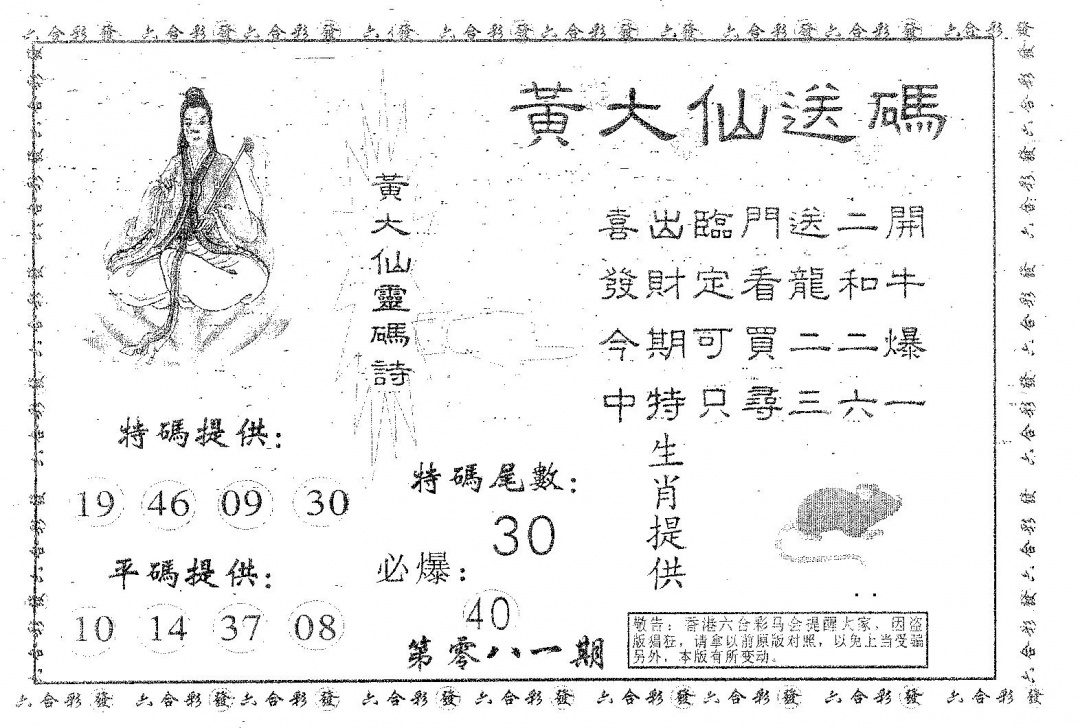 六合彩發 六合彩發六合彩發 六發 六合彩發六合彩發 六發 六合彩發六合彩發 六合彩發
黃大仙送碼
黃大仙靈碼詩
喜出臨門送二開
發財定看龍和牛
今期可買二二爆
中特只尋三六一
特碼提供:
19 46 09 30
平碼提供:
10 14 37 08
特碼尾數:
30
必爆:
40
第零八一期
生肖提供
敬告：香港六合彩马会提醒大家，因盗
版猖狂，请拿以前原版对照，以免上当受骗
另外，本版有所变动。
六合彩發 六合彩發六合彩發 六合彩發 六合彩發六合彩發 六合彩發 六合彩發